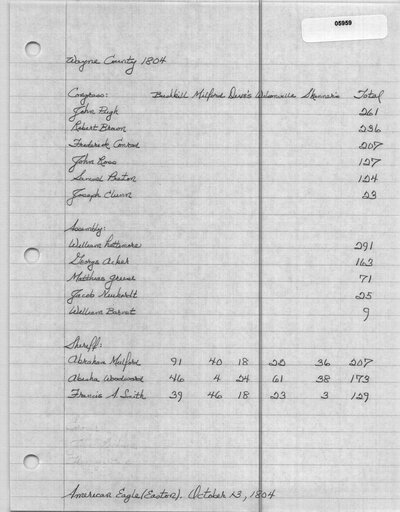 05959
Wayne County 1804
Congress: Bushkill Milford Dern's Wilsonville Skinner's Total
John Pugh 261
Robert Brown 236
Frederick Conrad 207
John Ross 127
Samuel Preston 124
Joseph Clunn 23
Assembly:
William Lattimore 291
George Acker 163
Matthias Gress 71
Jacob 25
William Barnet 9
Sheriff:
Abraham Mulford 91 40 18 22 36 207
Abisha Woodward 46 4 24 61 38 173
Francis A. Smith 39 46 18 23 3 129
American Eagle (Easton). October 13, 1804